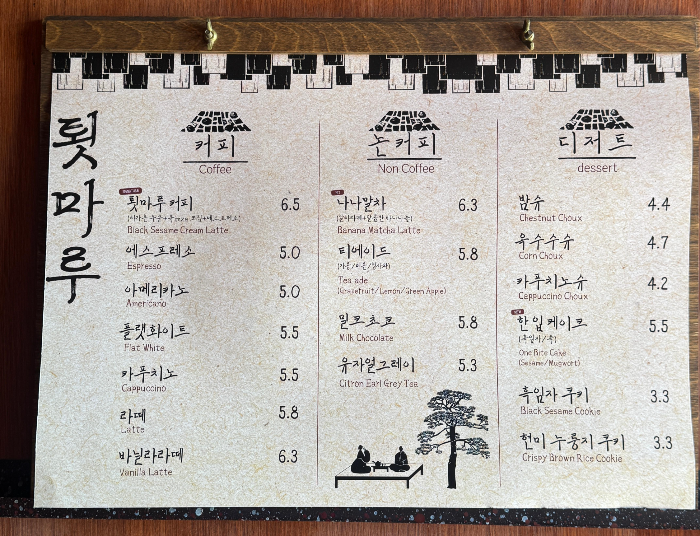 툇마루
커피
Coffee
툇마루커피 6.5
Black Sesame Cream Latte
에스프레소 5.0
Espresso
아메리카노 5.0
Americano
플랫화이트 5.5
Flat White
카푸치노 5.5
Cappuccino
라떼 5.8
Latte
바닐라라떼 6.3
Vanilla Latte
논커피
Non Coffee
나나말차 6.3
Banana Matcha Latte
티에이드 5.8
Tea ade
(Grapefruit/Lemon/Green Apple)
밀크초코 5.8
Milk Chocolate
유자얼그레이 5.3
Citron Earl Grey Tea
디저트
dessert
밤슈 4.4
Chestnut Choux
옥수수슈 4.7
Corn Choux
카푸치노슈 4.2
Cappuccino Choux
한입케이크 5.5
(흑임자/쑥)
One Bite Cake
(Sesame/Mugwort)
흑임자 쿠키 3.3
Black Sesame Cookie
현미 누룽지 쿠키 3.3
Crispy Brown Rice Cookie